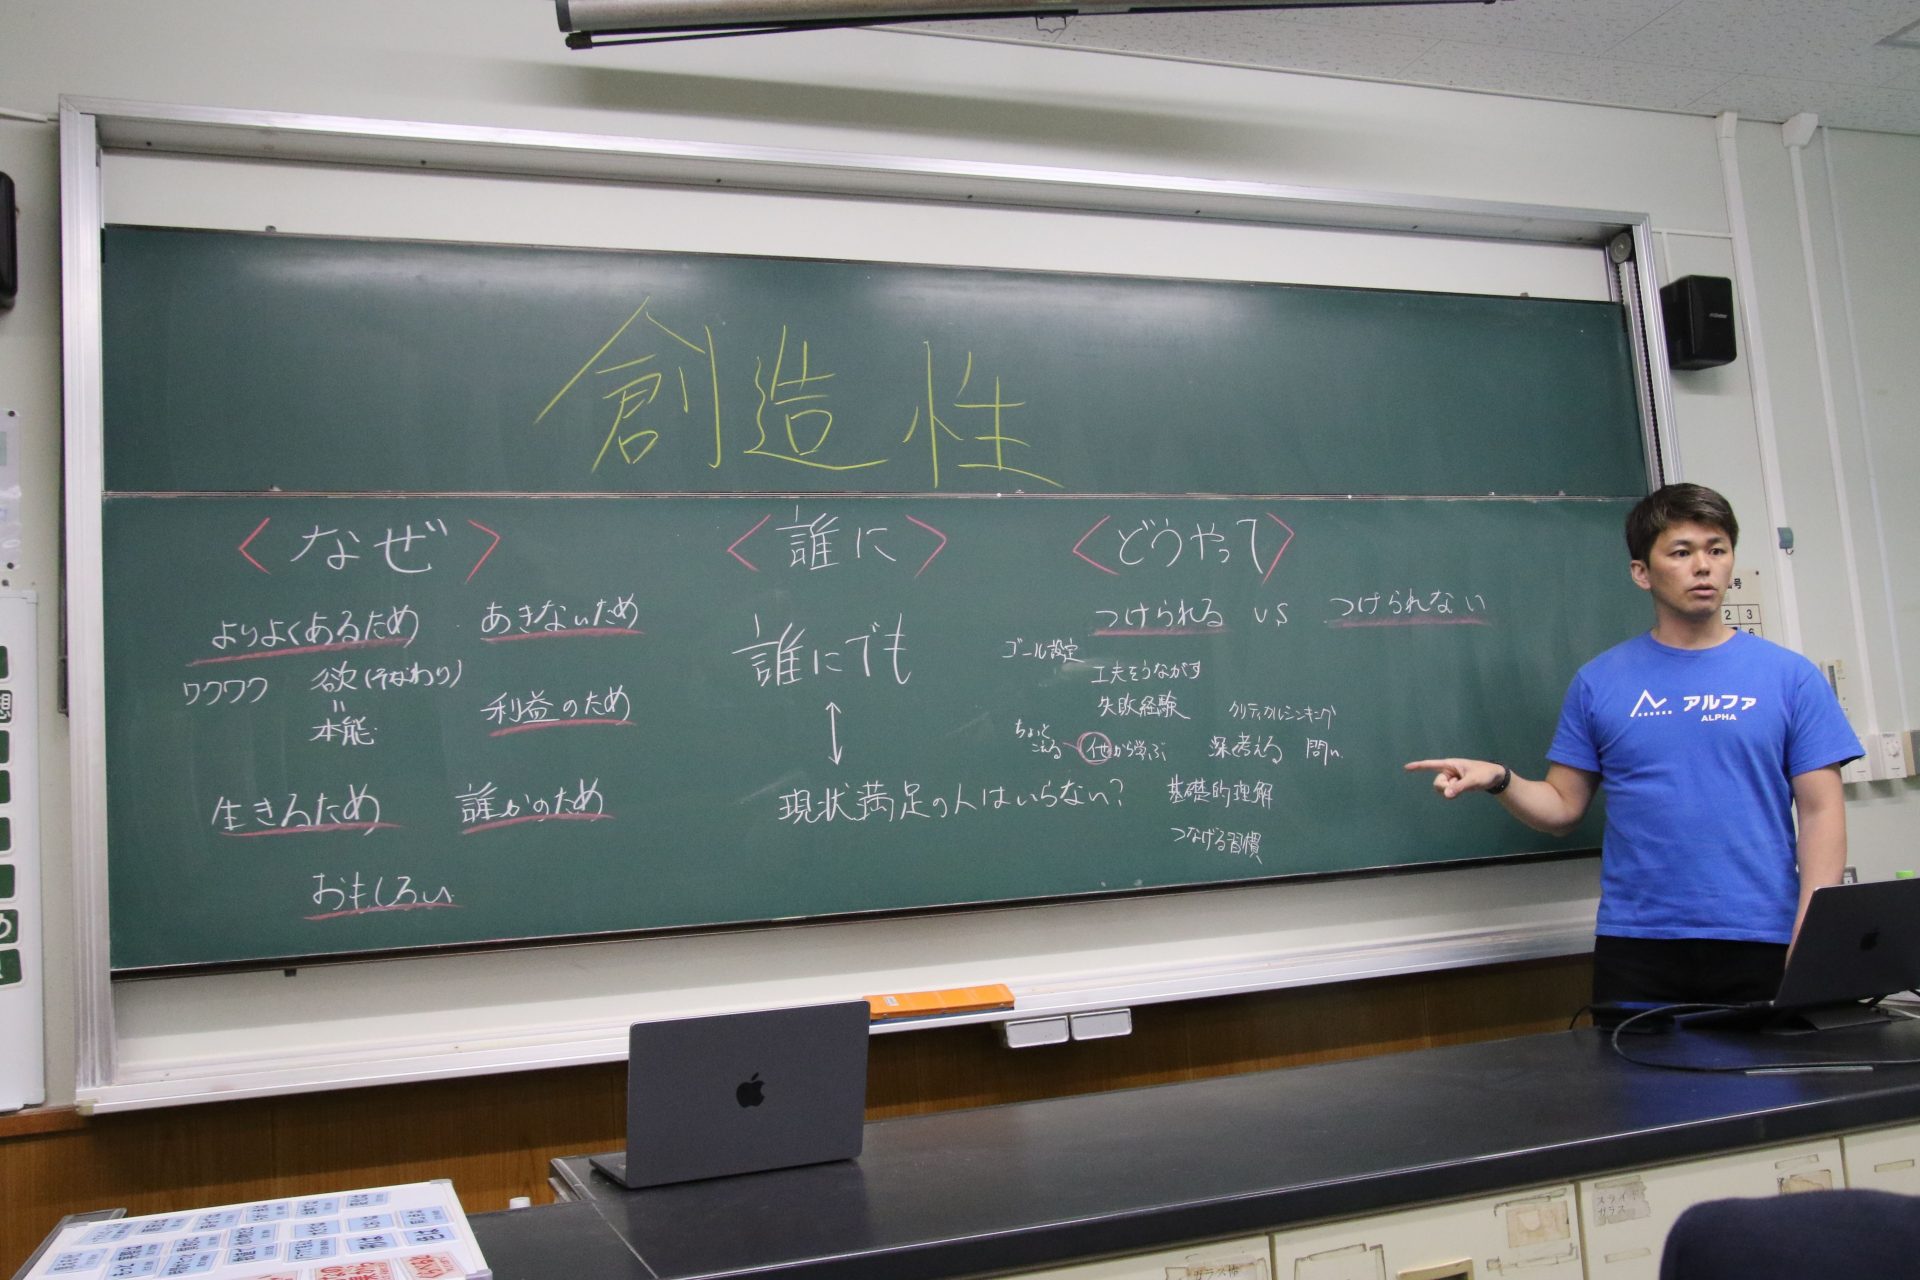 創造性
〈なぜ〉
よりよくあるため
あきないため
ワクワク
欲(そなわり)
=
本能
利益のため
生きるため
誰かのため
おもしろい
〈誰に〉
誰にでも
↕
現状満足の人はいらない?
〈どうやって〉
つけられる vs つけられない
ゴール設定
工夫をうながす
失敗経験
クリティカルシンキング
ちょっと
こえる
他から学ぶ
深考える 問い
基礎的理解
つなげる習慣
アルファ
ALPHA
スライド
ガラス